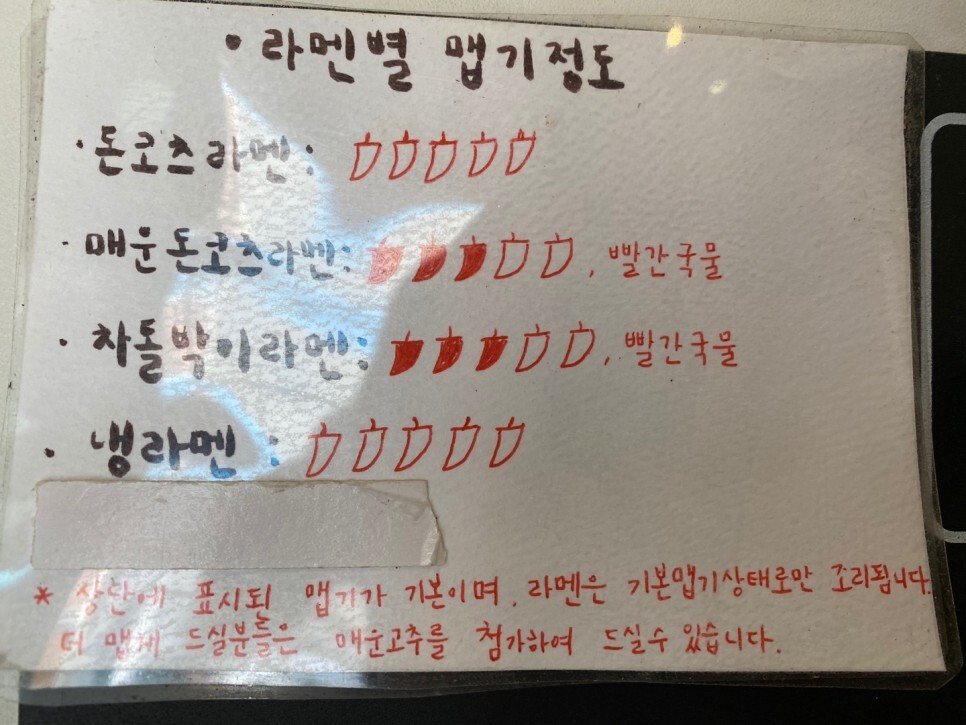 • 라멘별 맵기정도
· 돈코츠라멘:
· 매운돈코츠라멘: , 빨간국물
· 차돌박이라멘: , 빨간국물
· 냉라멘 :
* 상단에 표시된 맵기가 기본이며, 라멘은 기본맵기상태로만 조리됩니다.
더 맵게 드실분들은 매운고추를 첨가하여 드실수 있습니다.